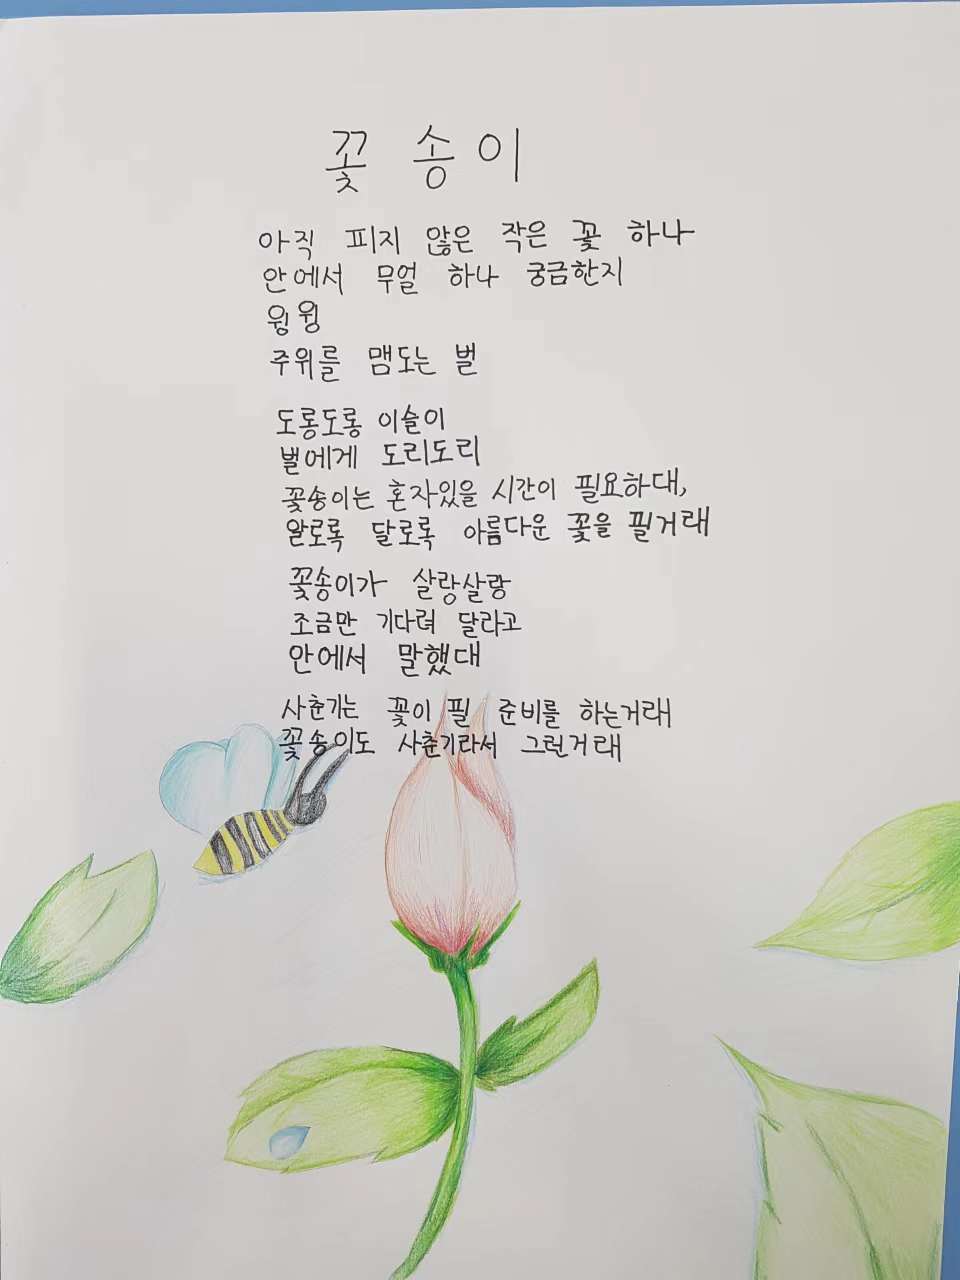 꽃 송이
아직 피지 않은 작은 꽃 하나
안에서 무얼 하나 궁금한지
윙윙
주위를 맴도는 벌
도롱도롱 이슬이
벌에게 도리도리
꽃송이는 혼자있을 시간이 필요하대,
알로록 달로록 아름다운 꽃을 필거래
꽃송이가 살랑살랑
조금만 기다려 달라고
안에서 말했대
사춘기는 꽃이 필 준비를 하는거래
꽃송이도 사춘기라서 그런거래